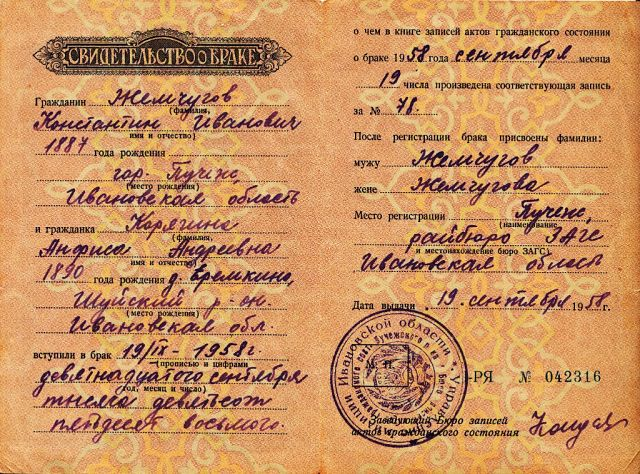 СВИДЕТЕЛЬСТВО О БРАКЕ
Гражданин Жемчугов
(фамилия,
Константин Иванович
имя и отчество)
1887 года рождения
гор. Пучеж,
(место рождения)
Ивановская область
и гражданка Корягина
(фамилия,
Анфиса Андреевна
имя и отчество)
1890 года рождения д. Еремкино,
Шуйский р-он.
(место рождения)
Ивановская обл.
вступили в брак 19/IX - 1958г
(прописью и цифрами
девятнадцатого сентября
год, месяц и число)
тысяча девятьсот
пятьдесят восьмого.
о чем в книге записей актов гражданского состояния
о браке 1958 года сентября месяца
19 числа произведена соответствующая запись
за № 78.
После регистрации брака присвоены фамилии:
мужу Жемчугов
жене Жемчугова
Место регистрации Пучеж,
(наименование
райбюро ЗАГС
и местонахождение бюро ЗАГС)
Ивановская область
Дата выдачи 19 сентября 1958г.
М. П.
-РЯ № 042316
Заведующий Бюро записей
актов гражданского состояния